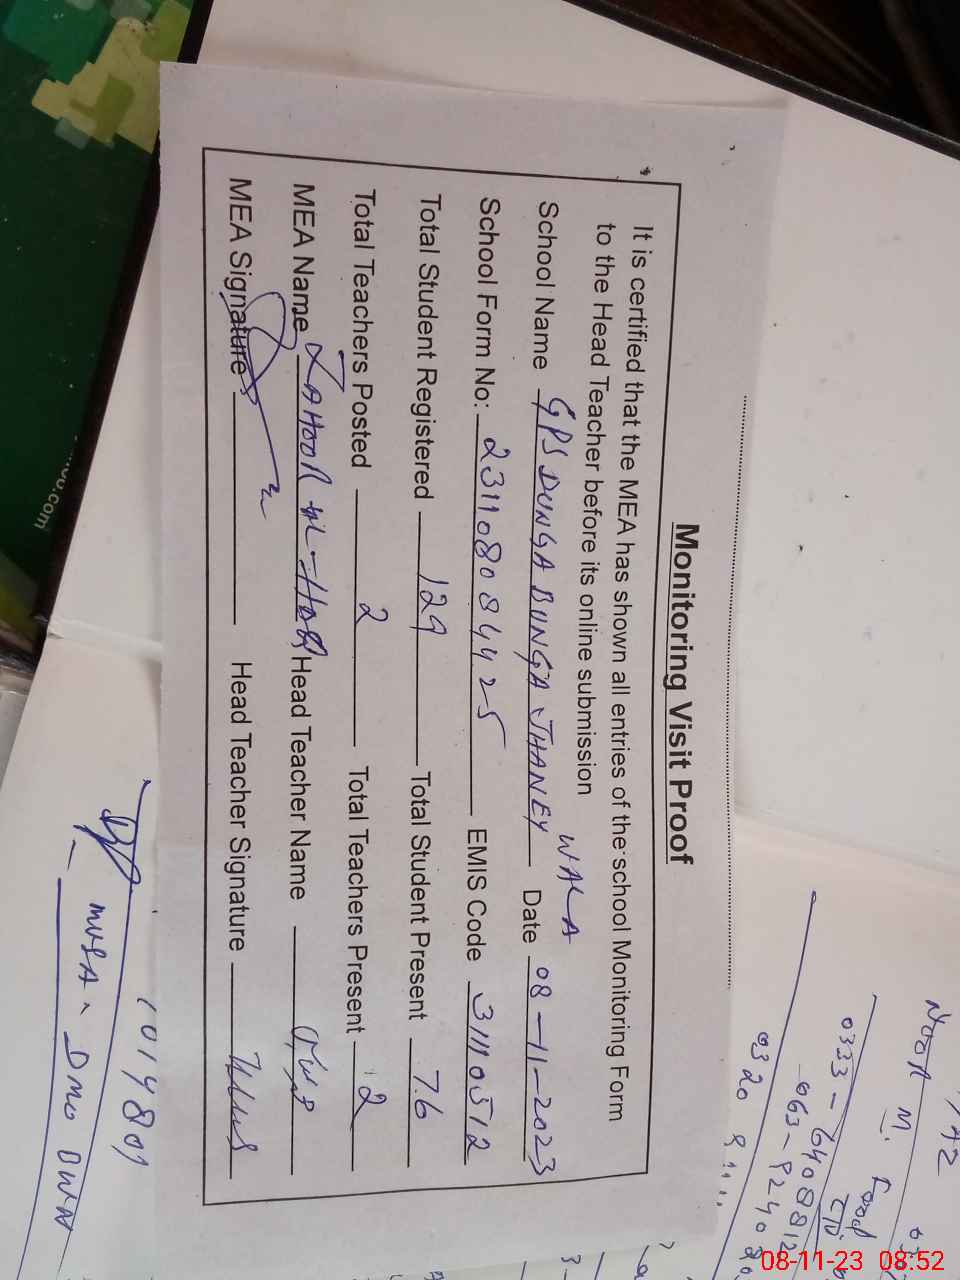 Monitoring Visit Proof
It is certified that the MEA has shown all entries of the school Monitoring Form
to the Head Teacher before its online submission
School Name GPS DUNGA BUNGA JHANEY WALA Date 08-11-2023
School Form No: 2311080 84425 EMIS Code 31110512
Total Student Registered 129 Total Student Present 76
Total Teachers Posted 2 Total Teachers Present 2
MEA Name ZAHOOR UL-HAQ Head Teacher Name
MEA Signature Head Teacher Signature
101 4801
MUSA DMO BWN
NOOR M.
0333-6408812
063-9240
0320
.com
08-11-23 08:52